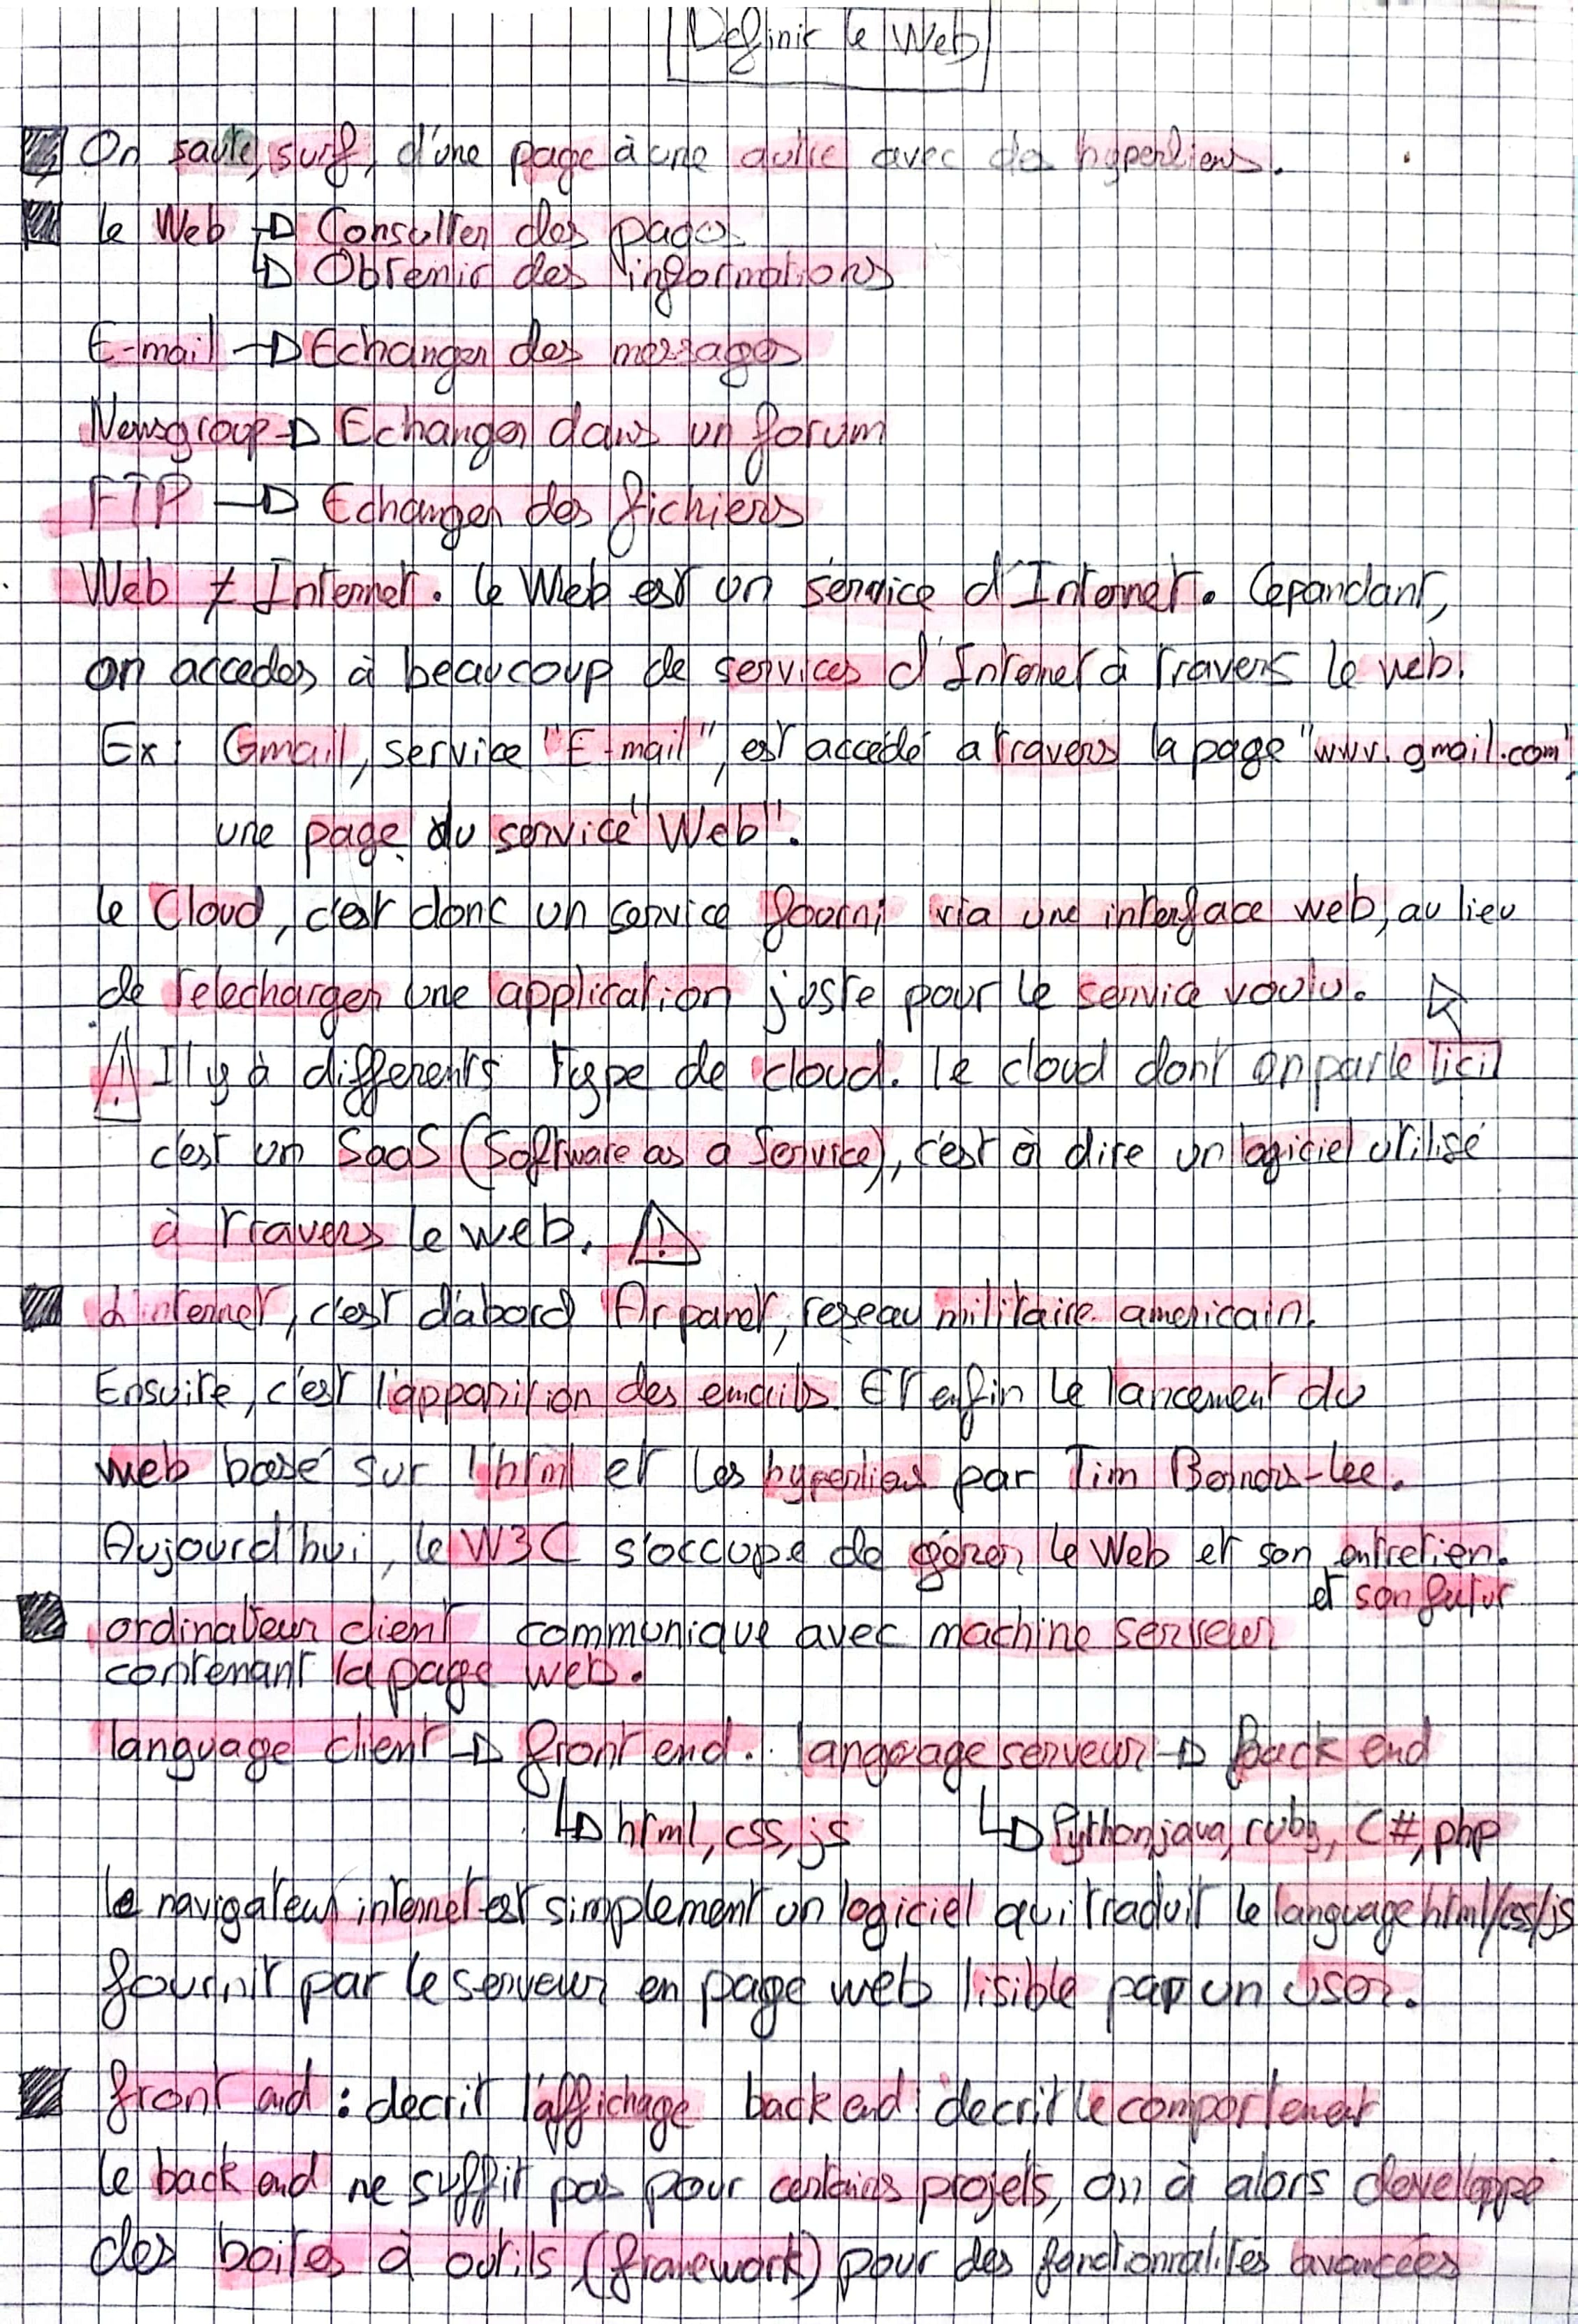 Définir le Web
On saute, surf, d'une page à une autre avec des hyperliens.
le Web → Consulter des pages
→ Obtenir des informations
E-mail → Echanger des messages
Newsgroup → Echanger dans un forum
FTP → Echanger des fichiers
Web ≠ Internet. le Web est un service d'Internet. Cependant,
on accedes à beaucoup de services d'Internet à travers le web.
Ex: Gmail, service "E-mail", est accédé a travers la page "www.gmail.com",
une page du service "Web".
le Cloud, c'est donc un service fourni via une interface web, au lieu
de telecharger une application juste pour le service voulu.
⚠ Il y à differents type de cloud. le cloud dont on parle ici
c'est un SaaS (Software as a Service), c'est à dire un logiciel utilisé
à travers le web. ⚠
L'internet, c'est d'abord Arpanet, reseau militaire americain.
Ensuite, c'est l'apparition des emails. Et enfin le lancement du
web basé sur l'html et les hyperliens par Tim Berners-lee.
Aujourd'hui, le W3C s'occupe de gérer le Web et son entretien.
et son futur
ordinateur client communique avec machine serveur
contenant la page web.
language client → front end. language serveur → back end
↳ html, css, js ↳ Python, java, ruby, C#, php
le navigateur internet est simplement un logiciel qui traduit le language html/css/js
fournit par le serveur en page web lisible par un user.
front end : decrit l'affichage back end : decrit le comportement
le back end ne suffit pas pour certains projets, on à alors developpé
des boites à outils (framework) pour des fonctionnalités avancées